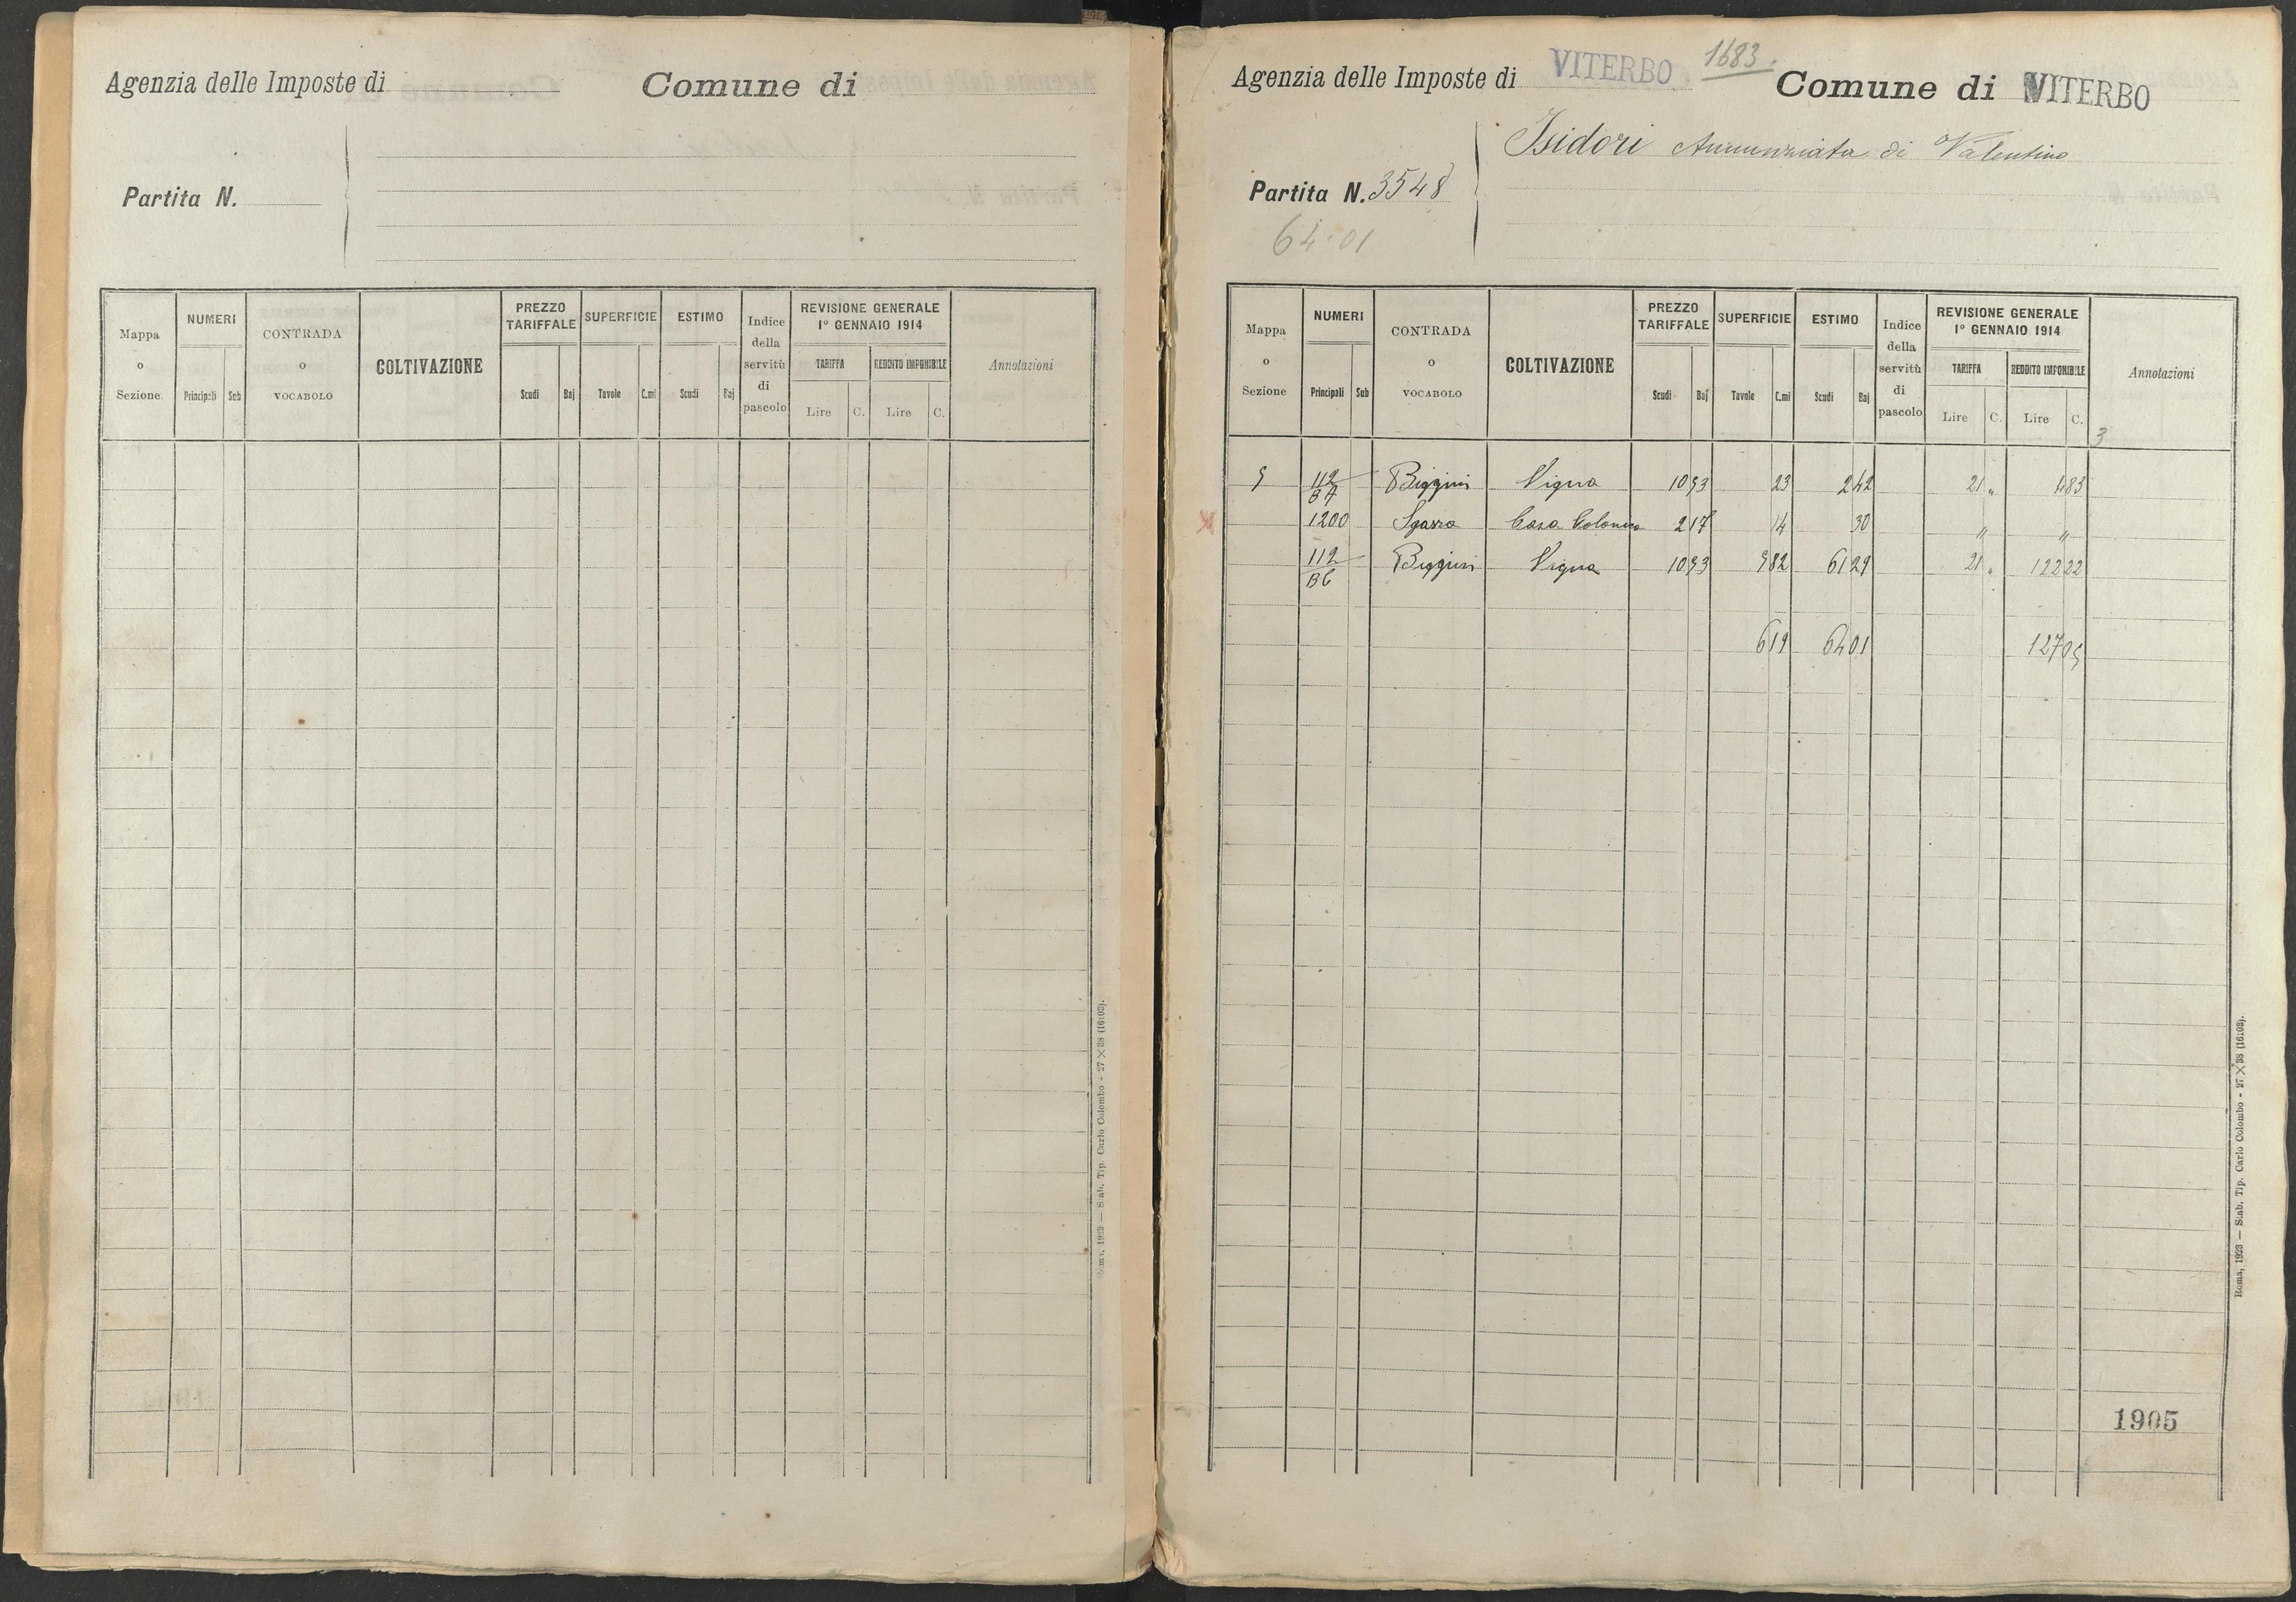 Agenzia delle Imposte di
Comune di
Partita N.
Mappa o Sezione
NUMERI
Principali Sub
CONTRADA o VOCABOLO
COLTIVAZIONE
PREZZO TARIFFALE
Scudi Baj
SUPERFICIE
Tavole C.mi
ESTIMO
Scudi Baj
Indice della servitù di pascolo
REVISIONE GENERALE
1º GENNAIO 1914
TARIFFA
Lire C.
REDDITO IMPONIBILE
Lire C.
Annotazioni
Roma, 1923 — Stab. Tip. Carlo Colombo - 27 × 38 (16103).
1683.
Agenzia delle Imposte di VITERBO
Comune di VITERBO
Isidori Annunziata di Valentino
Partita N. 3548
64.01
Mappa o Sezione
NUMERI
Principali Sub
CONTRADA o VOCABOLO
COLTIVAZIONE
PREZZO TARIFFALE
Scudi Baj
SUPERFICIE
Tavole C.mi
ESTIMO
Scudi Baj
Indice della servitù di pascolo
REVISIONE GENERALE
1º GENNAIO 1914
TARIFFA
Lire C.
REDDITO IMPONIBILE
Lire C.
Annotazioni
3
112/BA Vigna 10 53 23 2 42 21 " 4 83
1200 Casa Colonica 2 17 14 30 " "
112 Vigna 10 53 5 82 61 29 21 " 122 22
6 19 64 01 127 05
1905
Roma, 1923 — Stab. Tip. Carlo Colombo - 27 × 38 (16103).